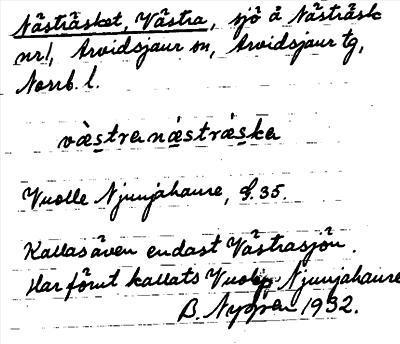 Nästräsket, Västra, sjö å Nästräsk
nr 1, Arvidsjaur sn, Arvidsjaur tg,
Norrb. l.
væ̀stra næ̀stræ̀ska
Vuolle Njuujahaure, S. 35.
Kallas även endast Västrasjön.
Har förut kallats Vuolep Njuujahaure
B. Nyman 1932.